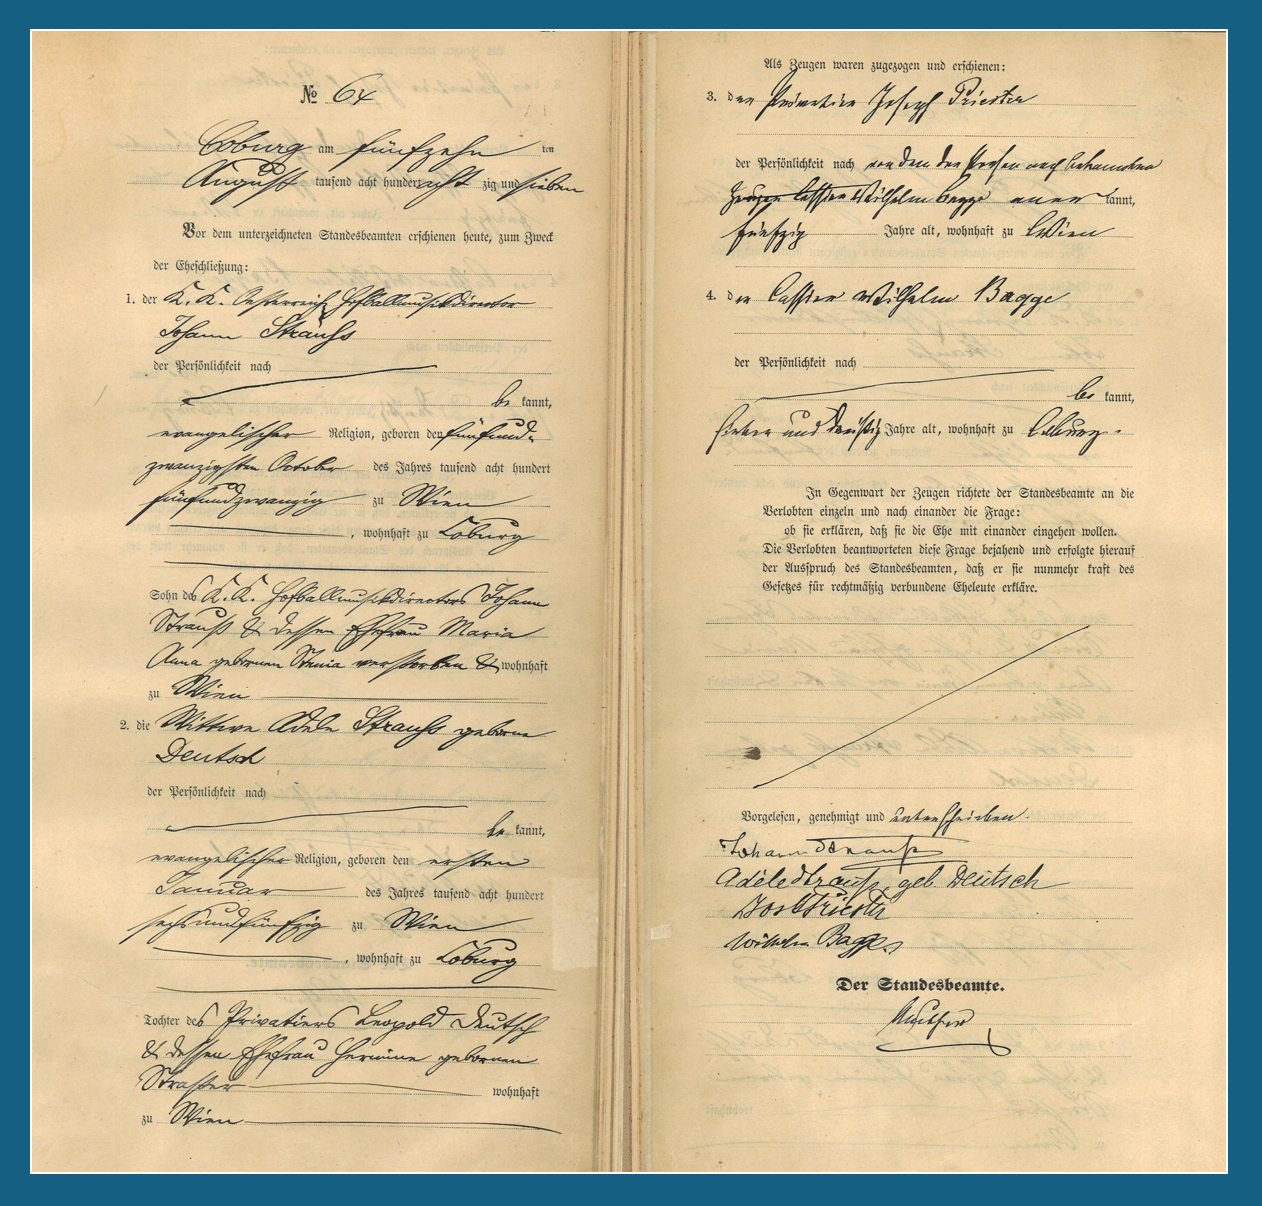 № 64
Coburg am fünfzehn ten
August tausend acht hundert acht zig und sieben
Vor dem unterzeichneten Standesbeamten erschienen heute, zum Zweck
der Eheschließung:
1. der K. K. Oesterreich Hofballmusikdirector
Johann Strauß
der Persönlichkeit nach
be kannt,
evangelischer Religion, geboren den fünfund-
zwanzigsten October des Jahres tausend acht hundert
fünfundzwanzig zu Wien
, wohnhaft zu Coburg
Sohn des K. K. Hofballmusikdirectors Johann
Strauß & dessen Ehefrau Maria
Anna gebornen verstorben & wohnhaft
zu Wien
2. die Wittwe Adele Strauß geborne
Deutsch
der Persönlichkeit nach
be kannt,
evangelischer Religion, geboren den ersten
Januar des Jahres tausend acht hundert
sechsundfünfzig zu Wien
, wohnhaft zu Coburg
Tochter des Privatiers Leopold Deutsch
& dessen Ehefrau Hermine gebornen
wohnhaft
zu Wien
Als Zeugen waren zugezogen und erschienen:
3. den Privatier Joseph Priester
der Persönlichkeit nach von dem der Person nach bekannten
Zeugen Cassier Wilhelm Bagge aner kannt,
fünfzig Jahre alt, wohnhaft zu Wien
4. den Cassier Wilhelm Bagge
der Persönlichkeit nach
be kannt,
sieben und dreißig Jahre alt, wohnhaft zu Coburg.
In Gegenwart der Zeugen richtete der Standesbeamte an die
Verlobten einzeln und nach einander die Frage:
ob sie erklären, daß sie die Ehe mit einander eingehen wollen.
Die Verlobten beantworteten diese Frage bejahend und erfolgte hierauf
der Ausspruch des Standesbeamten, daß er sie nunmehr kraft des
Gesetzes für rechtmäßig verbundene Eheleute erkläre.
Vorgelesen, genehmigt und unterschrieben.
Johann Strauß
Adèle Strauß, geb. Deutsch
Jos Priester
Wilhelm Bagge
Der Standesbeamte.
Muther